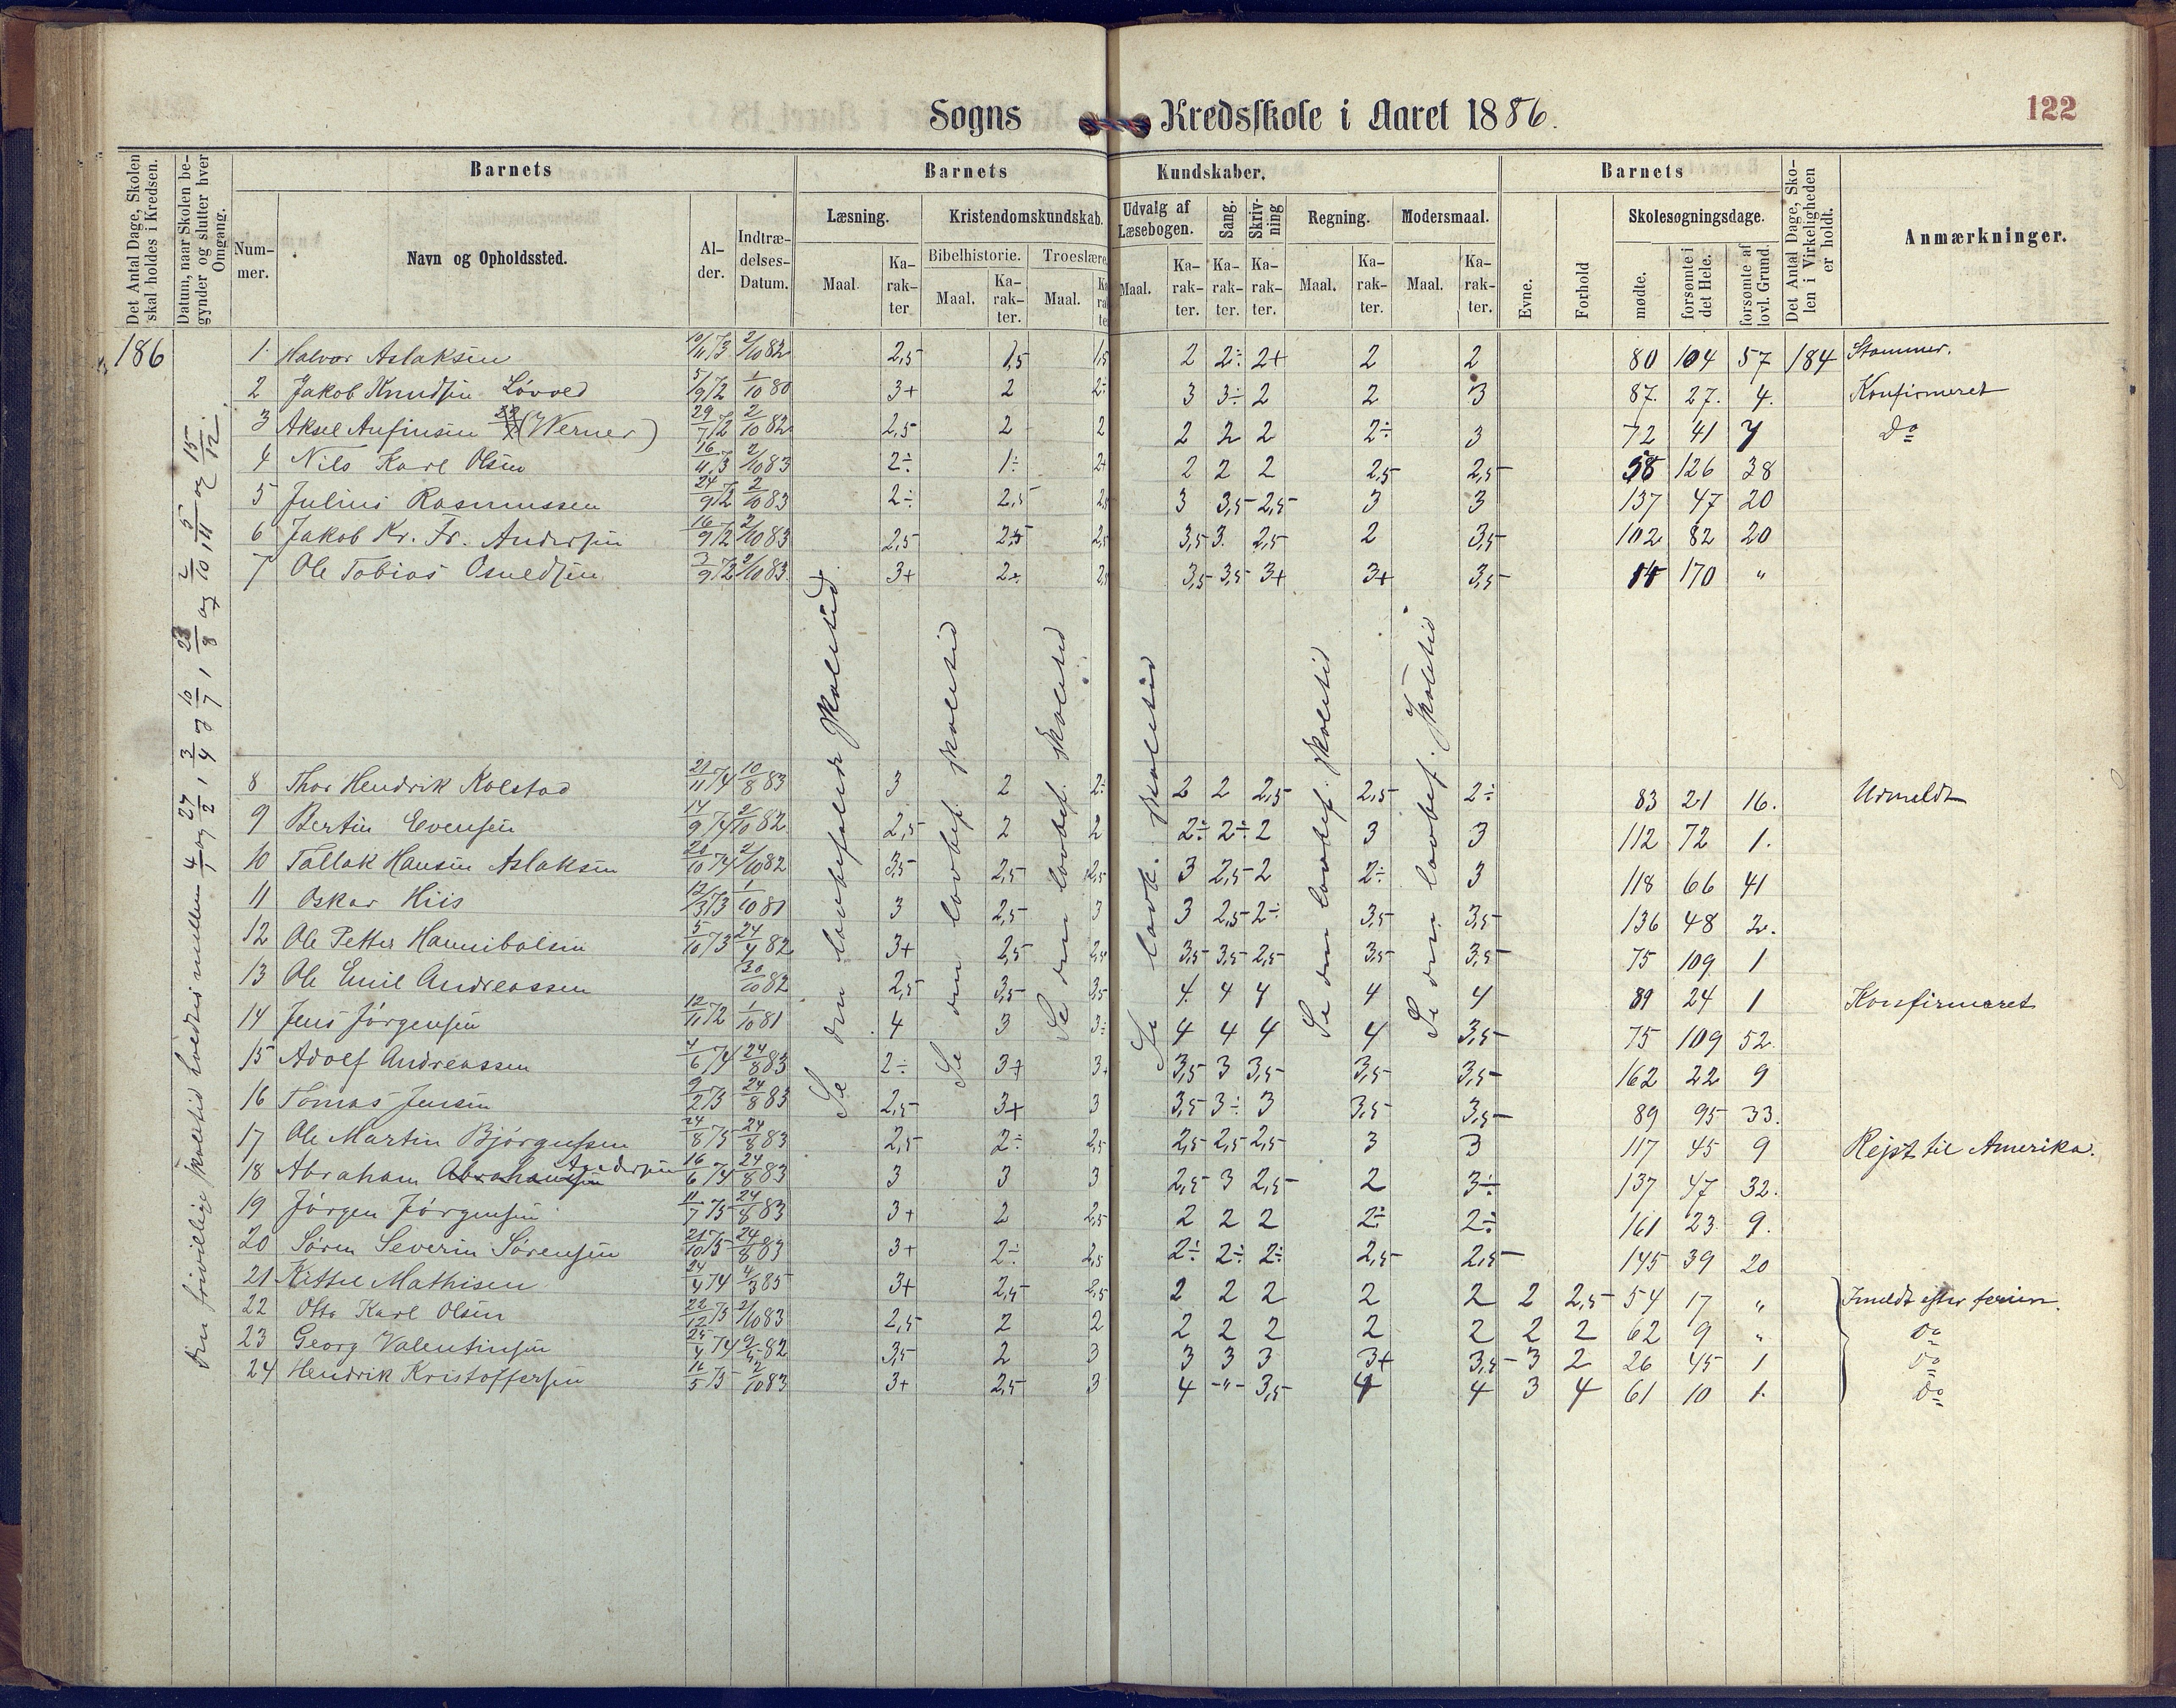 Sogns Kredsskole i Aaret 1886.
122
Det Antal Dage, Skolen skal holdes i Kredsen.
Datum, naar Skolen begynder og slutter hver Omgang.
Barnets
Barnets Kundskaber.
Barnets
Det Antal Dage, Skolen i Virkeligheden er holdt.
Anmærkninger.
Nummer.
Navn og Opholdssted.
Alder.
Indtrædelses-Datum.
Læsning.
Kristendomskundskab.
Udvalg af Læsebogen.
Sang.
Skrivning
Regning.
Modersmaal.
Evne.
Forhold
Skolesøgningsdage.
Bibelhistorie.
Troeslære.
Maal. Karakter Maal. Karakter. Maal. Karakter Maal. Karakter. Karakter. Karakter. Maal. Karakter. Maal. Karakter.
mødte.
forsømte i det Hele.
forsømte af lovl. Grund.
186
Den frivillige skoletid holdtes mellem 4/1 og 27/2, 3/4 og 10/7, 23/8 og 2/10, 5/11 og 15/12.
1. Halvor Aslaksen 10/11 73 2/10 82 2,5 1,5 1,5 2 2÷ 2+ 2 2 80 104 57 184 Stammer.
2 Jakob Knudsen Løvold 5/9 72 1/10 80 3+ 2 2÷ 3 3÷ 2 2 3 87. 27. 4. Konfirmeret
3 Aksel Anfinsen (Werner) 29/7 72 2/10 82 2,5 2 2 2 2 2 2÷ 3 72 41 7 Do
4 Nils Karl Olsen 16/11 73 2/10 83 2÷ 1÷ 2+ 2 2 2 2,5 2,5 58 126 38
5 Julius Rasmussen 24/9 72 2/10 83 2÷ 2,5 2,5 3 3,5 2,5 3 3 137 47 20
6 Jakob Kr. Fr. Andersen 16/9 72 2/10 83 2,5 2,5 2,5 3,5 3. 2,5 2 3,5 102 82 20
7 Ole Tobias Osuldsen 3/9 72 2/10 83 3+ 2+ 2,5 3,5 3,5 3+ 3+ 3,5 14 170 "
Se den lovbefalede skoletid
Se den lovbef. skoletid
Se den lovbef. skoletid
Se lovb. skoletid
Se den lovbef. skoletid
Se den lovbef. skoletid
8 Thor Hendrik Kolstad 21/11 74 10/8 83 3 2 2÷ 2 2 2,5 2,5 2÷ 83 21 16. Udmeldt
9 Bertin Evensen 14/9 74 2/10 82 2,5 2 2 2÷ 2÷ 2 3 3 112 72 1.
10 Tallak Hansen Aslaksen 20/10 74 2/10 82 3,5 2,5 2,5 3 2,5 2 2÷ 3 118 66 41
11 Oskar Hiis 12/3 73 1/10 81 3 2,5 3 3 2,5 2÷ 3,5 3,5 136 48 2.
12 Ole Petter Hannibalsen 5/10 73 24/4 82 3+ 2,5 2,5 3,5 3,5 2,5 3,5 3,5 75 109 1
13 Ole Emil Andreassen 30/10 82 2,5 3,5 3,5 4. 4 4 4 4 89 24 1 Konfirmeret
14 Jens Jörgensen 12/11 72 1/10 81 4 3 3÷ 4 4 4 4 3,5 75 109 52.
15 Adolf Andreassen 4/6 74 24/8 83 2÷ 3+ 3+ 3,5 3 3,5 3,5 3,5 162 22 9
16 Tomas Jensen 9/2 73 24/8 83 2,5 3+ 3 3,5 3÷ 3 3,5 3,5 89 95 33.
17 Ole Martin Bjørgulfsen 24/8 75 24/8 83 2,5 2÷ 2,5 2,5 2,5 2,5 3 3 117 45 9 Rejst til Amerika.
18 Abraham Abrahamsen Andersen 16/6 74 24/8 83 3 3 3 2,5 3 2,5 2 3÷ 137 47 32.
19 Jörgen Jörgensen 11/7 75 24/8 83 3+ 2 2,5 2 2 2 2÷ 2÷ 161 23 9.
20 Sören Severin Sörensen 21/10 75 24/8 83 3+ 2÷ 2,5 2÷ 2÷ 2÷ 2,5 2,5 145 39 20
21 Kittil Mathisen 24/4 74 4/3 85 3+ 2,5 2,5 2 2 2 2 2 2 2,5 54 17 " Inmeldt efter ferien.
22 Otto Karl Olsen 22/12 73 2/10 83 2,5 2 2 2 2 2 2 2 2 2 62 9 " Do
23 Georg Valentinsen 25/4 74 82 3,5 2 3 3 3 3 3+ 3,5 3 2 26 45 1 Do
24 Hendrik Kristoffersen 11/5 75 2/10 83 3+ 2,5 3 4 -"- 3,5 4 4 3 4 61 10 1. Do